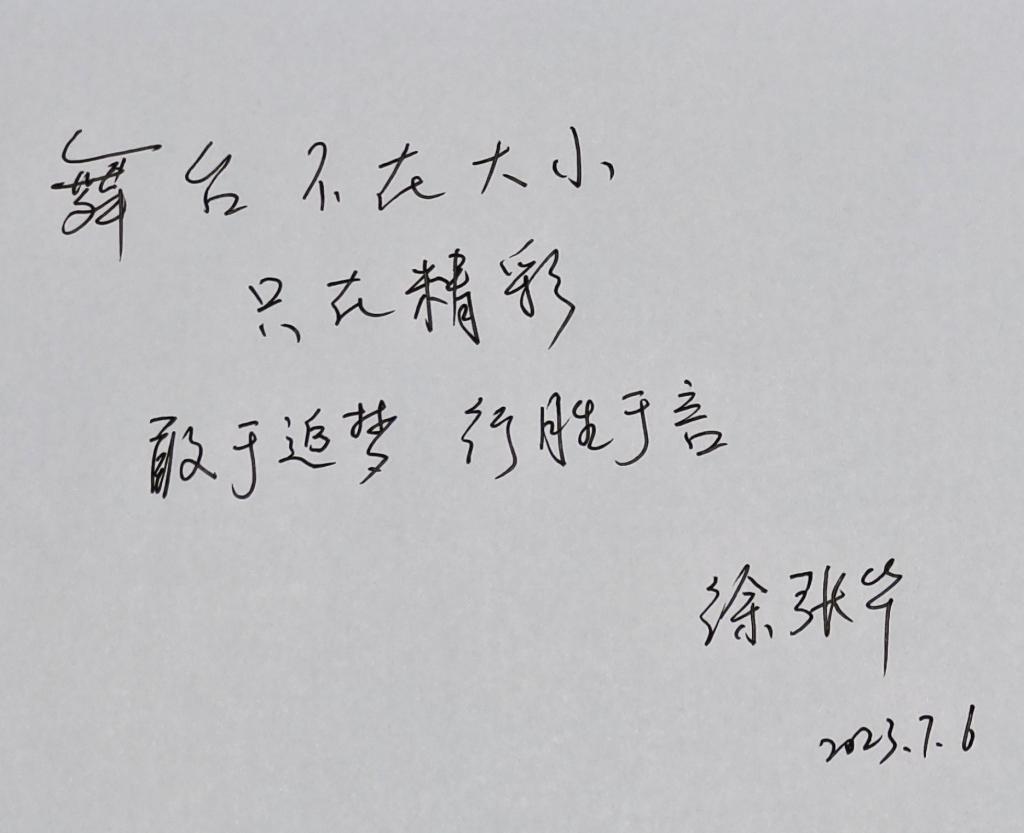 舞台不在大小
只在精彩
敢于追梦 行胜于言
徐张华
2023.7.6